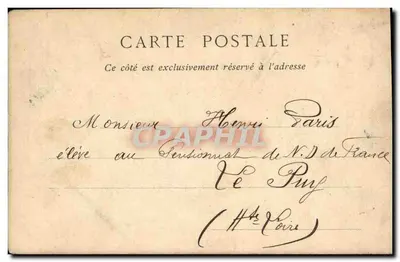 CARTE POSTALE
Ce côté est exclusivement réservé à l'adresse
Monsieur Henri Paris
élève au Pensionnat de N.D de France
Le Puy
(Hte Loire)
CPAPHIL.COM